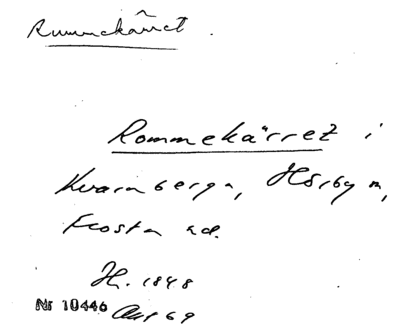 Rummekärret.
Rommekärret i
Kvarnberga, Hörby sn,
Frosta hd.
H. 1848
Nr 10446 Avs 69